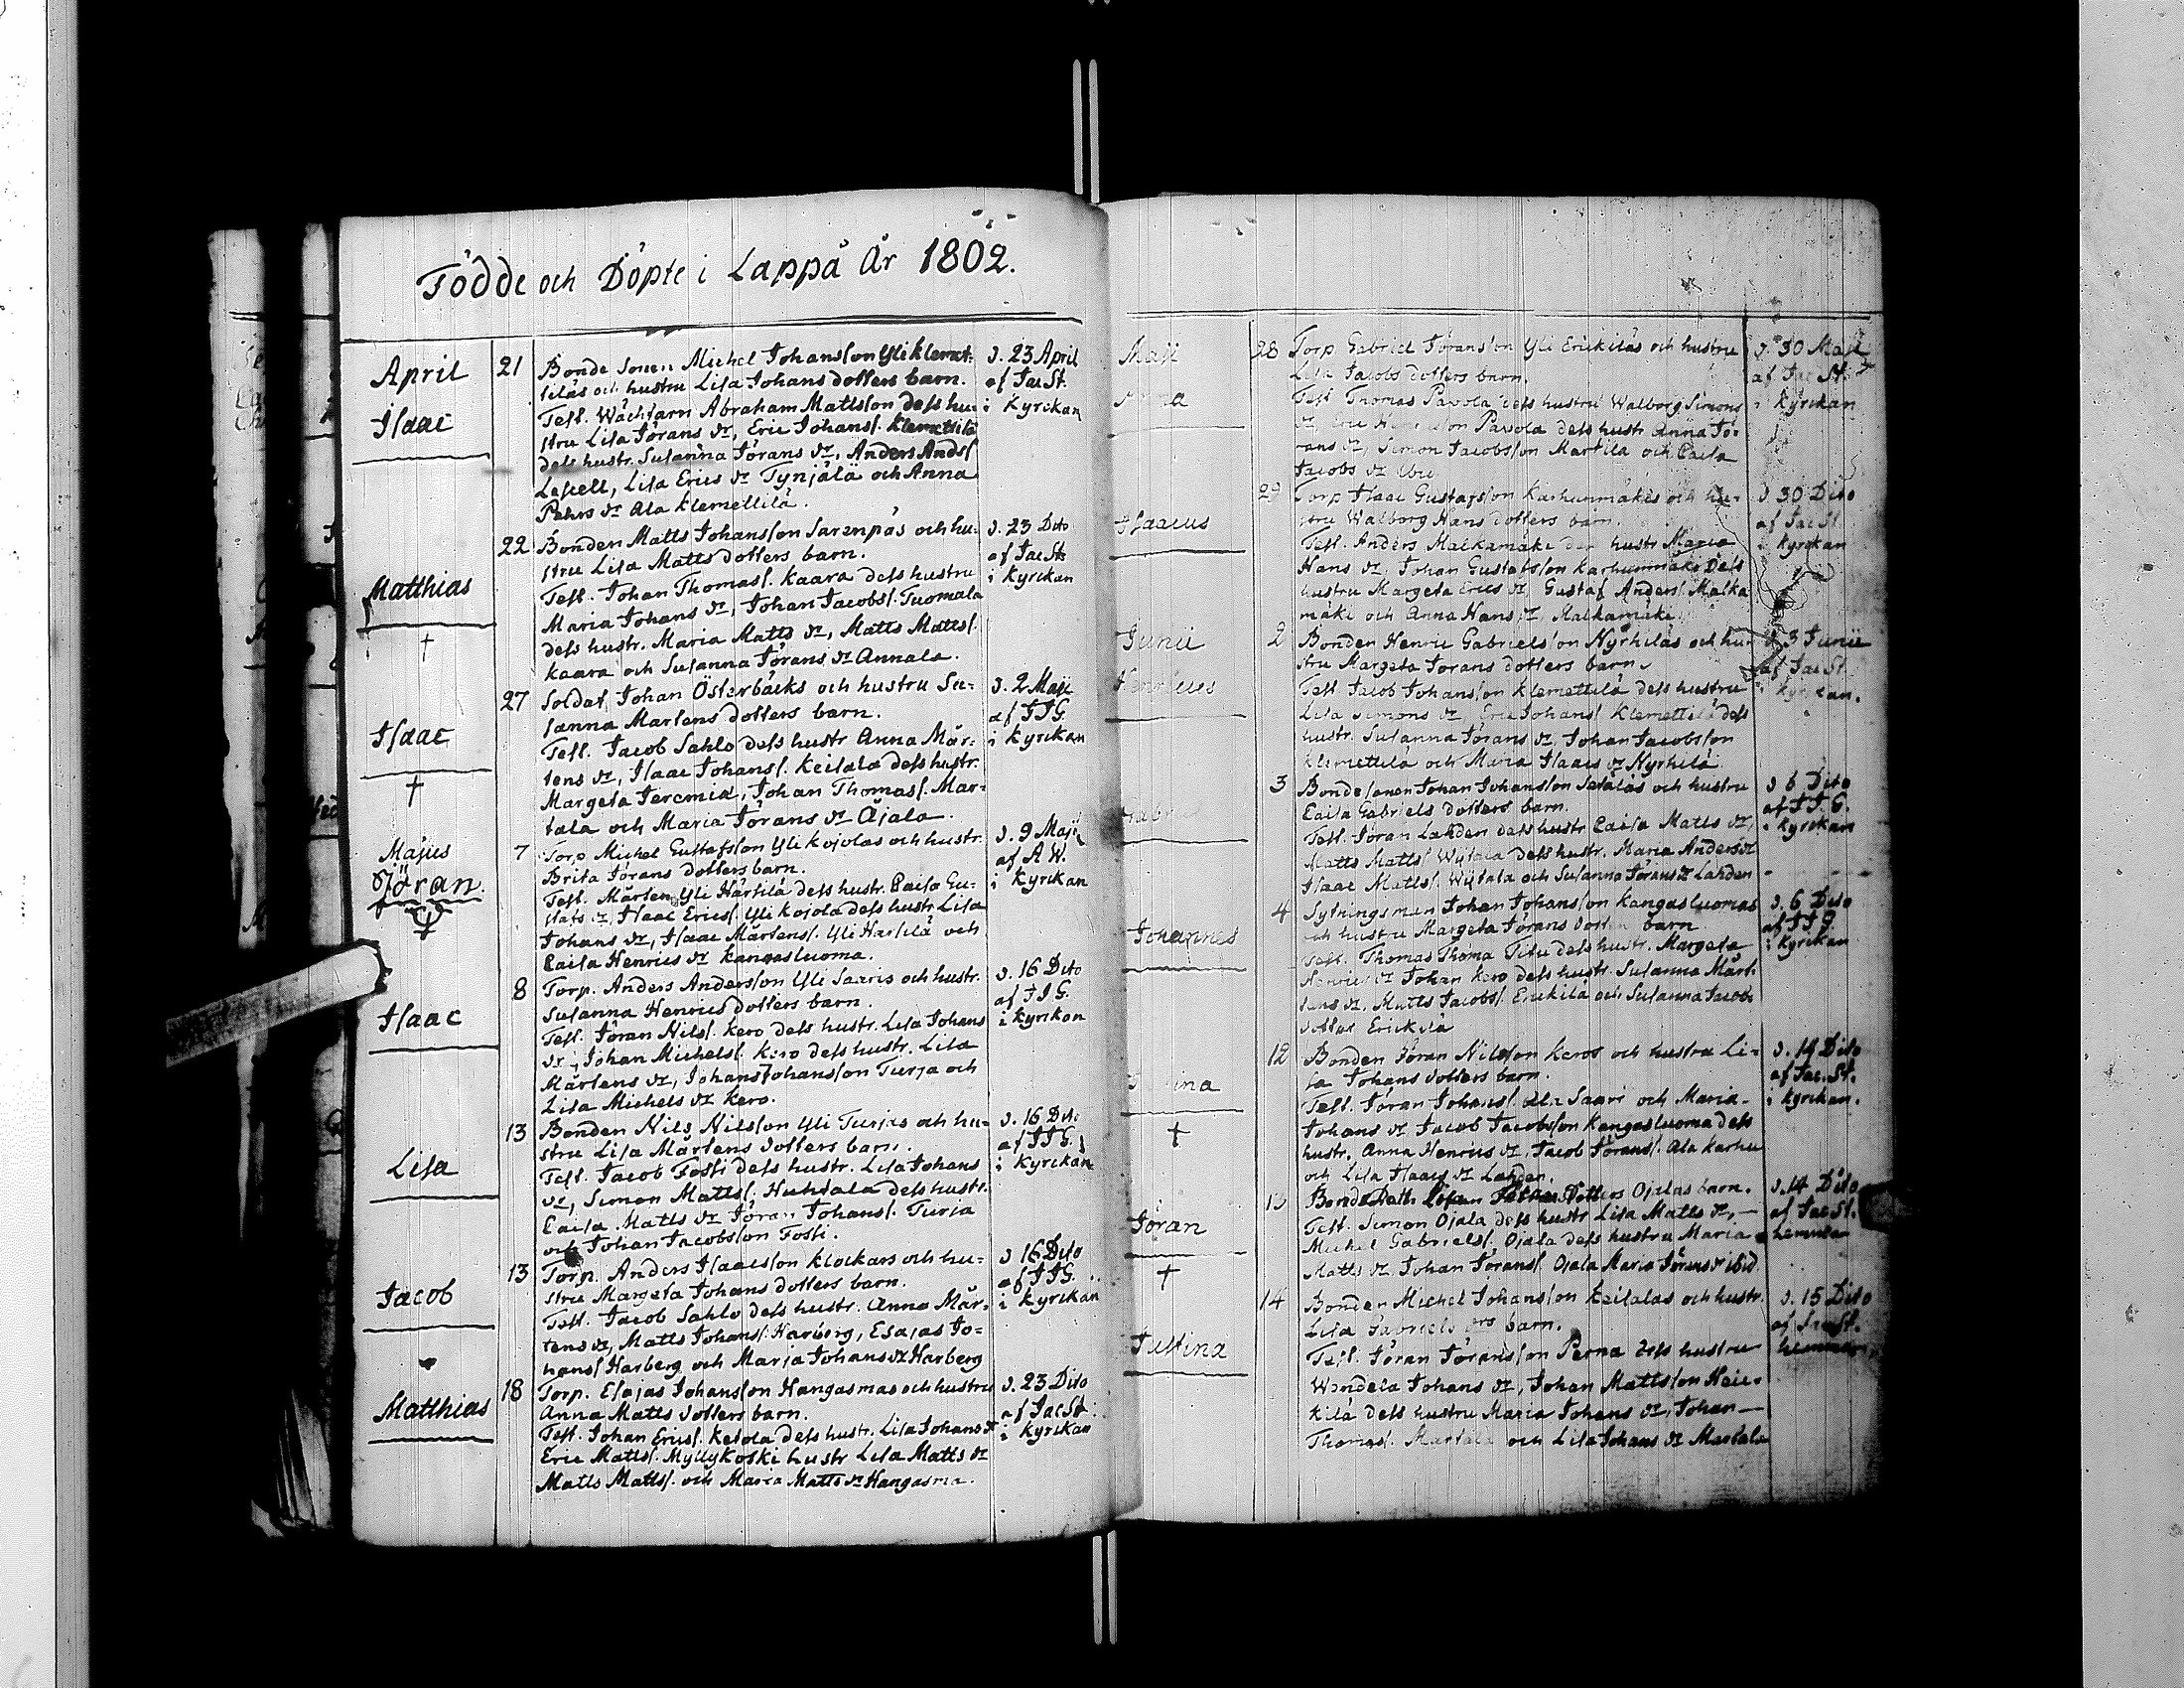 Födde och Döpte i Lappå År 1802.
April 21 Bonde Sonen Michel Johansson Yli Klemet- d. 23 April
tiläs och hustru Lisa Johans dotters barn. af Jac St.
Isaac Test. Wäcfarn Abraham Mattsson dess hu- i Kyrckan
stru Lisa Jörans dr, Eric Johans s. Klemettilä
dess hustr. Susanna Jörans dr, Anders Ands s
Lescell, Lisa Erics dr Tynjälä och Anna
Pehrs dr Ala Klemettilä.
22 Bonden Matts Johansson Sarenpäs och hu- d. 23 Dito
stru Lisa Matts dotters barn. af Jac St.
Matthias Test. Johan Thomas s. Kaara dess hustru i Kyrckan
Maria Johans dr, Johan Jacobs s. Tuomala
† dess hustr. Maria Matts dr, Matts Matts s.
Kaara och Susanna Jörans dr Annala.
27 Soldat Johan Österbäcks och hustru Su- d. 2 Maji
sanna Mårtens dotters barn. af J J G.
Isaac Test. Jacob Sahlo dess hustr Anna Mår- i Kyrckan
tens dr, Isaac Johans s. Keisala dess hustr.
† Margeta Jeremiæ, Johan Thomas s. Mar-
tala och Maria Jörans dr Äjala.
Majus 7 Torp. Michel Gustafsson Yli Kojolas och hustr. d. 9 Maji
Jöran. Brita Jörans dotters barn. af A W.
Test. Mårten Yli Härsilä dess hustr. Caisa Gu- i Kyrckan
stafs dr, Isaac Erics s. Yli Kojola dess hustr. Lisa
Johans dr, Isaac Mårtens s. Yli Harsilä och
Caisa Henrics dr Kangasluoma.
8 Torp. Anders Andersson Yli Saaris och hustr. d. 16 Dito
Susanna Henrics dotters barn. af J J G.
Isaac Test. Jöran Nils s. Kero dess hustr. Lisa Johans i Kyrckan
dr, Johan Michels s. Kero dess hustr. Lisa
Mårtens dr, Johans Johansson Turja och
Lisa Michels dr Kero.
13 Bonden Nils Nilsson Yli Turjas och hu- d. 16 Dito
stru Lisa Mårtens dotters barn. af J J G.
Lisa Test. Jacob Fossi dess hustr. Lisa Johans i Kyrckan
dr, Simon Matts s. Huhtala dess hustr.
Caisa Matts dr Jöran Johans s. Turja
och Johan Jacobsson Fossi.
13 Torp. Anders Isaacsson Klockars och hu- d 16 Dito
stru Margeta Johans dotters barn. af J J G.
Jacob Test. Jacob Sahlo dess hustr. Anna Mår- i Kyrckan
tens dr, Matts Johans s. Harberg, Esajas Jo-
hans s Harberg och Marja Johans dr Harberg
18 Torp. Esajas Johansson Hangasmas och hustru d. 23 Dito
Matthias Anna Matts dotters barn. af Jac St.
Test. Johan Erics s. Kesola dess hustr. Lisa Johans dr i Kyrckan
Eric Matts s. Myllykoski hustr Lisa Matts dr
Matts Matts s. och Maria Matts dr Hangasma.
Maji 28 Torp Gabriel Göransson Yli Erickiläs och hustru d. 30 Maji
Lisa Jacobs dotters barn. af Jac St.
Test Thomas Pavola dess hustru Walborg Simons i Kyrckan
dr, Eric Pavola dess hustr Anna Jö-
rans dr, Simon Jacobsson Martila och Caisa
Jacobs dr
29 Torp Isaac Gustafsson Karhunmäkis och hu- d 30 Dito
Isaacus stru Walborg Hans dotters barn. af Jac St.
Test. Anders Malkamäki hustr Maria i Kyrckan
Hans dr, Johan Gustafsson Karhunmäki dess
hustru Margeta Erics dr, Gustaf Anders s. Malka
mäki och Anna Hans dr Malkamäki
Junii 2 Bonden Henric Gabrielsson Nyrhiläs och hu d. 3 Junii
stru Margeta Jörans dotters barn. af Jac St.
Henricus Test Jacob Johansson Klemettilä dess hustru i Kyrckan.
Lisa Simons dr, Eric Johans s Klemettilä dess
hustr. Susanna Jörans dr, Johan Jacobsson
Klemettilä och Maria Isaacs dr Nyrhilä
3 Bondesonen Johan Johansson Setäläs och hustru d 6 Dito
Caisa Gabriels dotters barn. af J J G.
Test. Jöran Lahden dess hustr Caisa Matts dr, i Kyrckan
Matts Matts s Wijtala dess hustr. Maria Anders dr
Isaac Matts s. Wijtala och Susanna Jörans dr Lahden
4 Sytningsman Johan Johansson Kangasluomas d. 6 Dito
och hustru Margeta Jörans dotters barn af J J G
Johannes Test. Thomas Thoma Titu dess hustr. Margeta i Kyrckan
Henrics dr Johan Kero dess hustr. Susanna Mårt-
tens dr. Matts Jacobs s. Erickilä och Susanna Jacobs
dotter Erickilä
12 Bonden Jöran Nilsson Keros och hustru Li- d. 14 Dito
sa Johans dotters barn. af Jac. St.
Test. Jöran Johans s. Ala Saari och Maria i Kyrckan.
† Johans dr Jacob Jacobsson Kangasluoma dess
hustr. Anna Henrics dr, Jacob Jörans s. Ala Karhu
och Lisa Isaacs dr Lahden.
Jöran 13 dotters Ojalas barn. d. 14 Dito
Test. Simon Ojala dess hustr Lisa Matts dr, af Jac St.
Michel Gabriels s. Ojala dess hustru Maria hemma
† Matts dr Johan Jörans s. Ojala Maria Jörans dr ibid
14 Bonden Michel Johansson Keisalas och hustr. d. 15 Dito
Lisa Gabriels drs barn. af Jac St.
Justina Test. Jöran Göransson Perna dess hustru hemma
Wendela Johans dr, Johan Mattsson Hei-
kilä dess hustru Maria Johans dr, Johan
Thomas s. Martala och Lisa Johans dr Martala